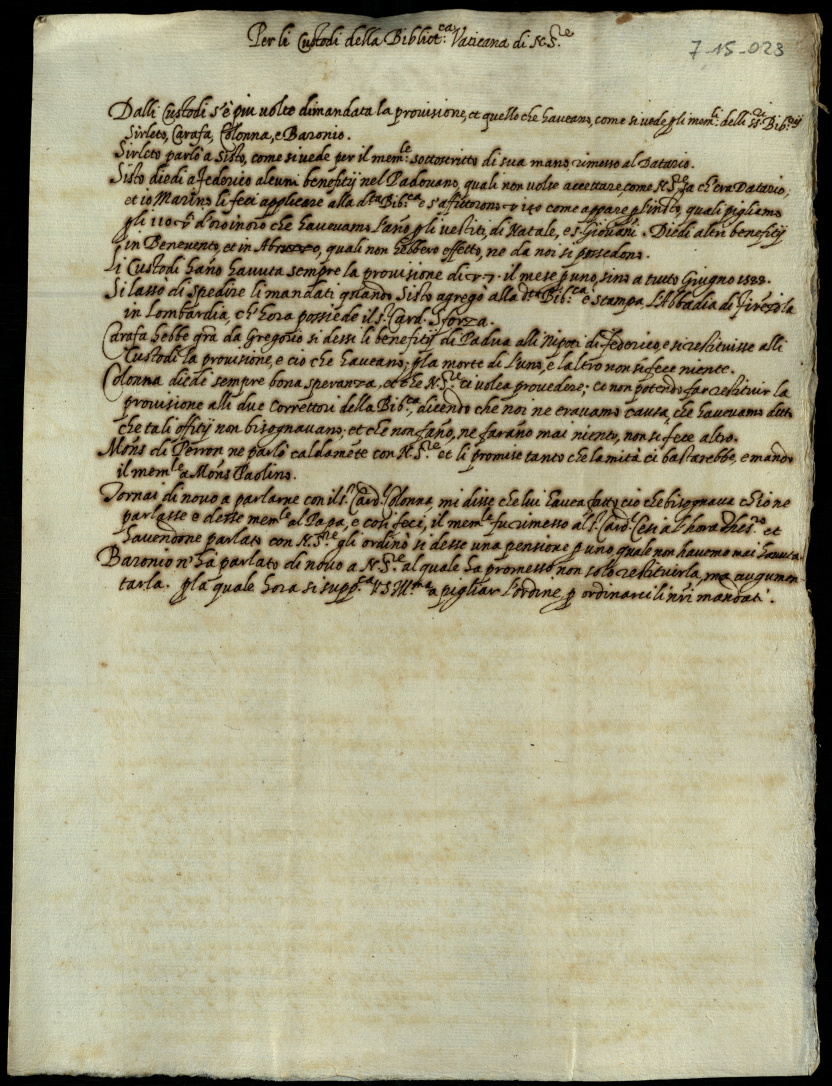 Per li Custodi della Bibliot.ca Vaticana di N.S.re
7-15-023
Dalli Custodi s'è piu volte dimandata la provisione, et quello che haveano, come si vede p li mem.li delli ss.ri Bib.rij
Sirleto, Carafa, Colonna, e Baronio.
Sirleto parlò a Sisto, come si vede per il mem.le sottoscritto di sua mano, rimesso al Datario.
Sisto diedi a Federico alcuni beneficij nel Padovano, quali non volse accettare come N.S.re sa ch'era Datario,
et io Marino li feci applicare alla d.ta Bib.ca e s'affittorono 140 come appare p, quali pigliamo
p li 110 d'oro in oro che havevamo l'año p li vestiti, di Natale, e s. Giovañi. Diedi altri beneficij
in Benevento, et in Abruzzo, quali non hebbero effetto, ne da noi si possedono.
Li Custodi hano havuta sempre la provisione di 7. il mese p uno, sino a tutto Giugno 1588.
Si lasso di spedire li mandati quando Sisto agregò alla d.ta Bib.ca e stampa, l'Abbadia di
in Lombardia, ch'hora possiede il s.r Card. Sforza.
Carafa hebbe grã da Gregorio si dessi li beneficij di Padua alli Nipoti di Federico, e si restituisse alli
Custodi la provisione, e cio che haveano; p la morte di l'uno, e l'altro non si fece niente.
Colonna diedi sempre bona speranza, et che N.S.re ci volea provedere; ce non potendo far restituir la
provisione alli due Correttori della Bib.ca, dicendo che noi ne eravamo causa, che havevamo dito
che tali officij non bisognavano, et che non fano, ne farano mai niente, non si fece altro.
Mons di Perron ne parlò caldamẽte con N.S.re et li promise tanto che la mità ci bastarebbe, e mandò
il mem.le a Mons Paolino.
Tornai di novo a parlarne con il s.r Card.l Colonna, mi disse che lui havea fatto cio che bisognava ch'io ne
parlasse e desse mem.le al Papa, e cosi feci, il mem.le fu rimesso al s.r Card. Cesi al hora Thes.ro et
havendone parlato con N.S.re gli ordinò si desse una pensione p uno, quale non havemo mai havuta.
Baronio n'hà parlato di novo a N.S.re al quale ha promesso, non solo restituirla, ma augumen-
tarla. p la quale hora si supp.ca V.S. Ill.ma a pigliar l'ordine p ordinarci li nr̃i mandati.